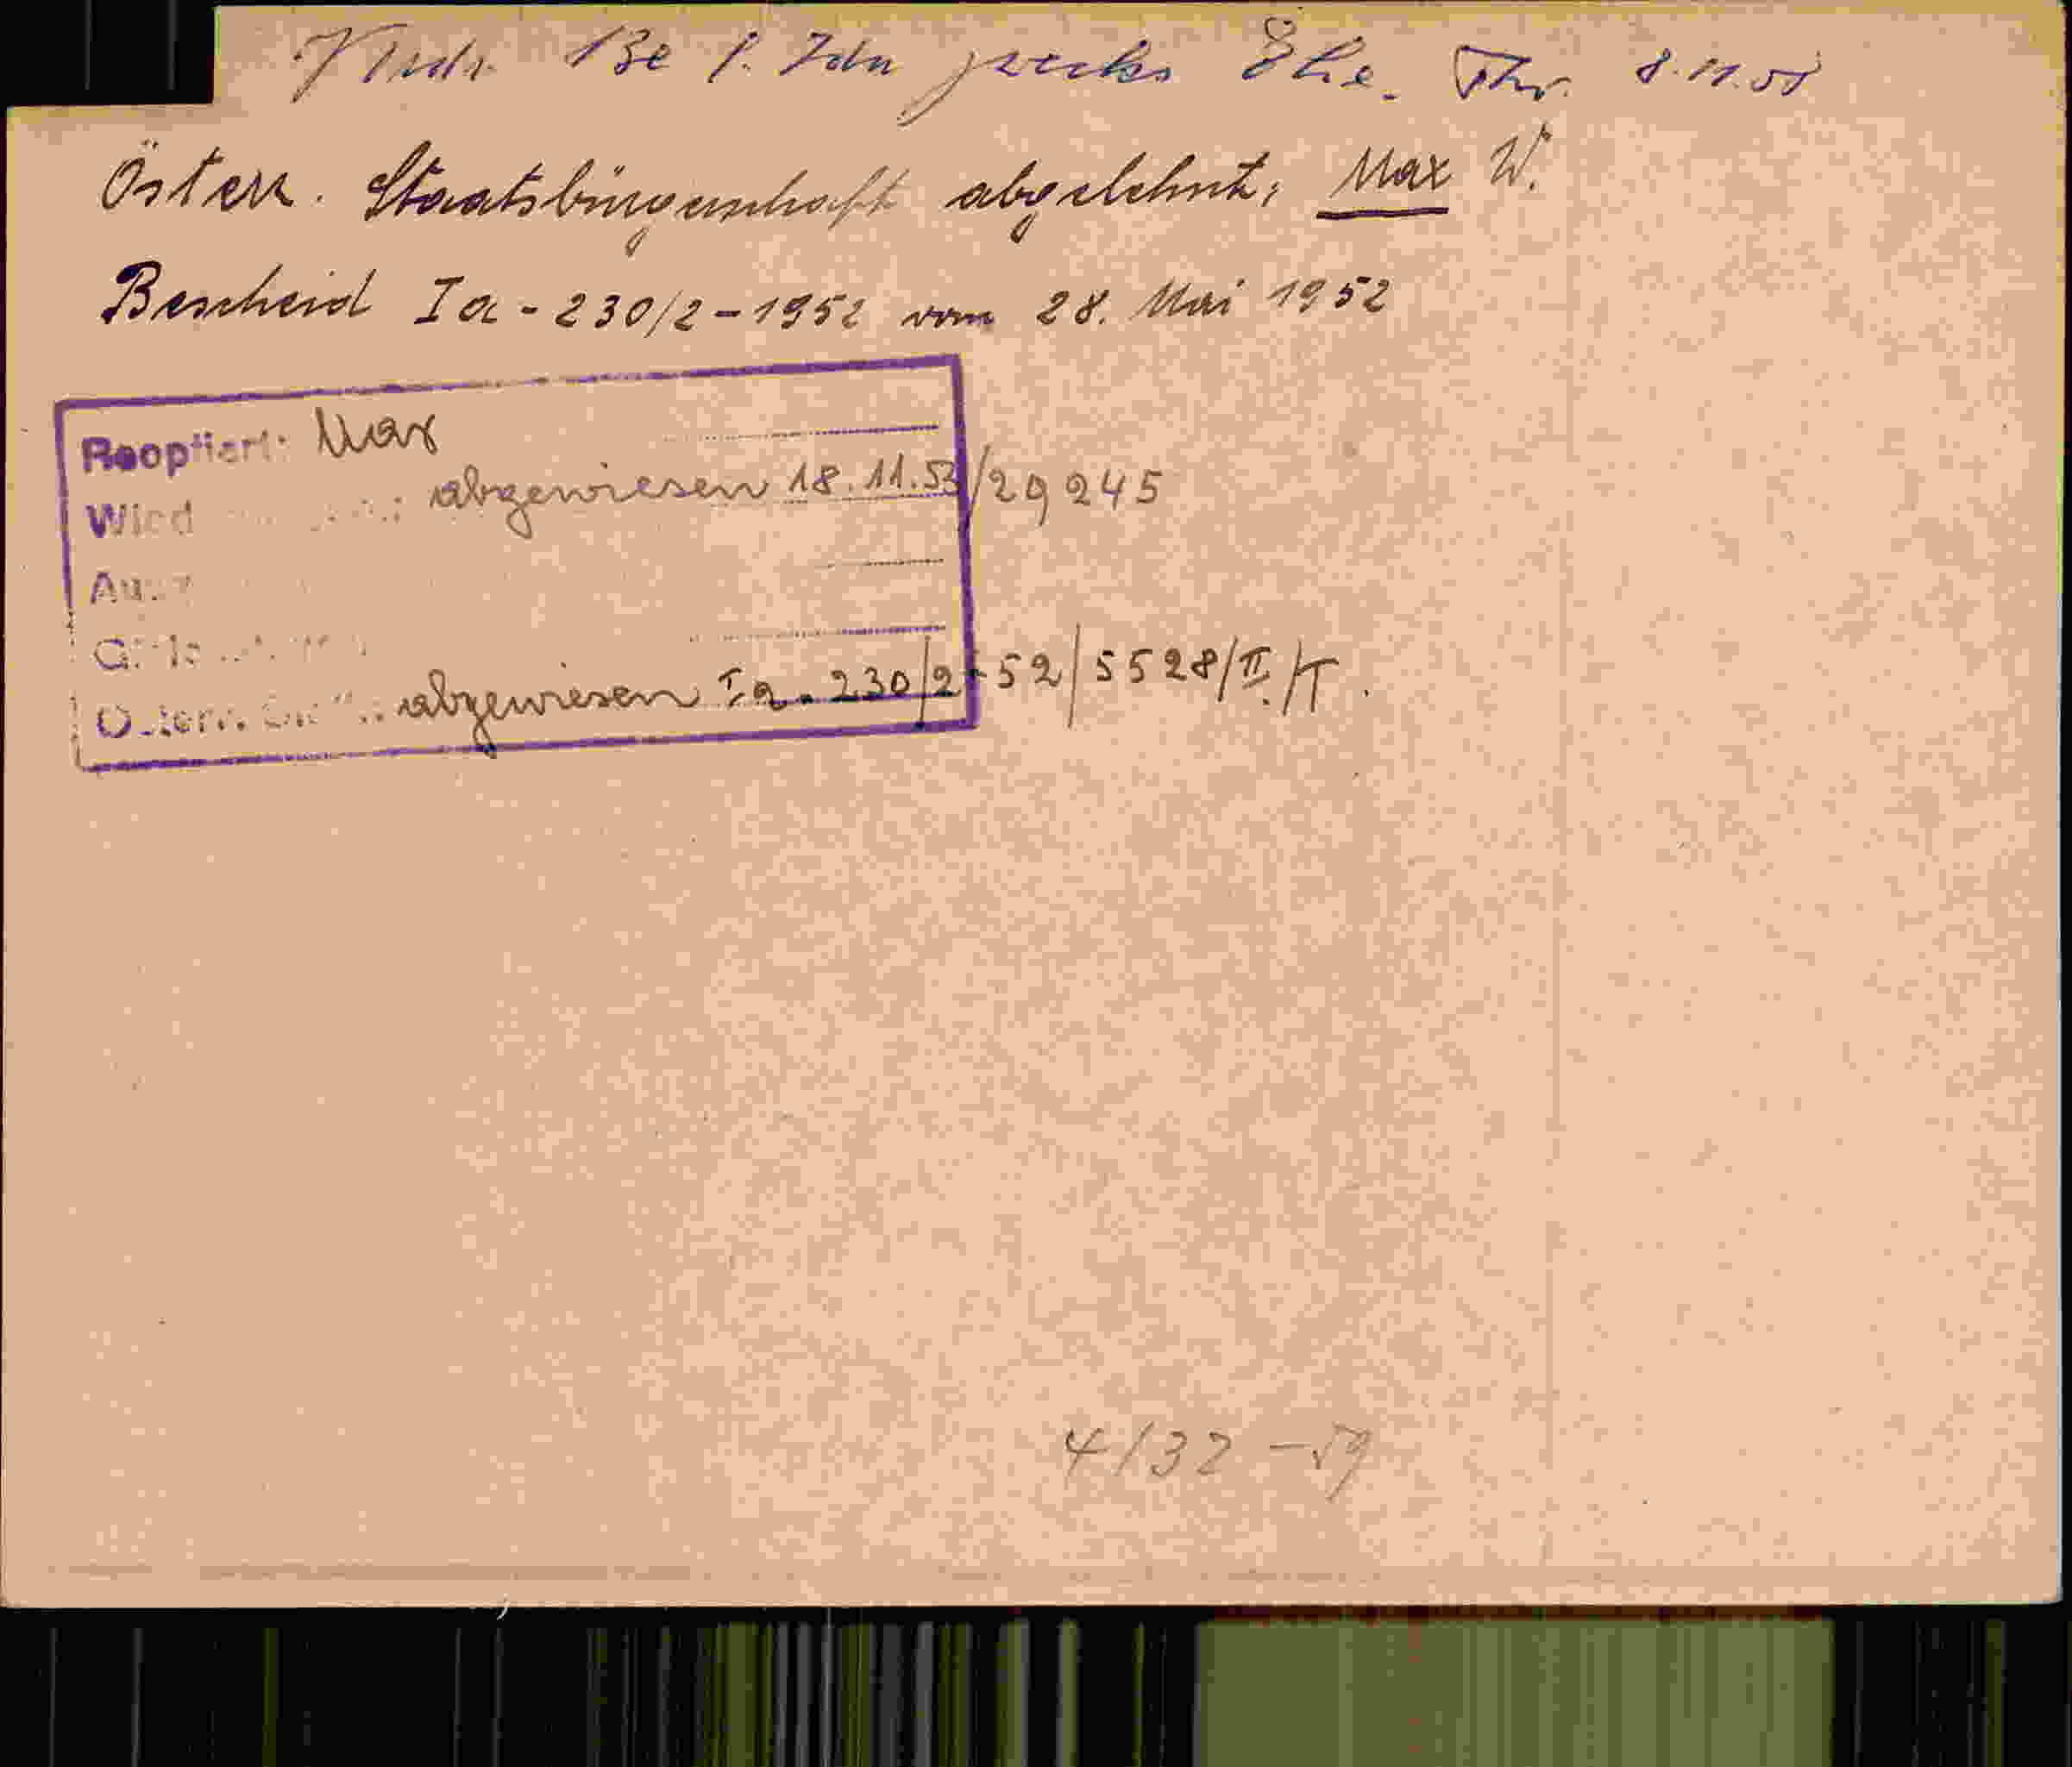 zwecks Ehe. 8.11.51
Österr. Staatsbürgerschaft abgelehnt, Max W.
Bescheid Ia - 230/2 - 1952 vom 28. Mai 1952
Reoptiert: Max
abgewiesen 18.11.53/29245
abgewiesen Ia - 230/2-52/5528/II/T.
4/32 - 59